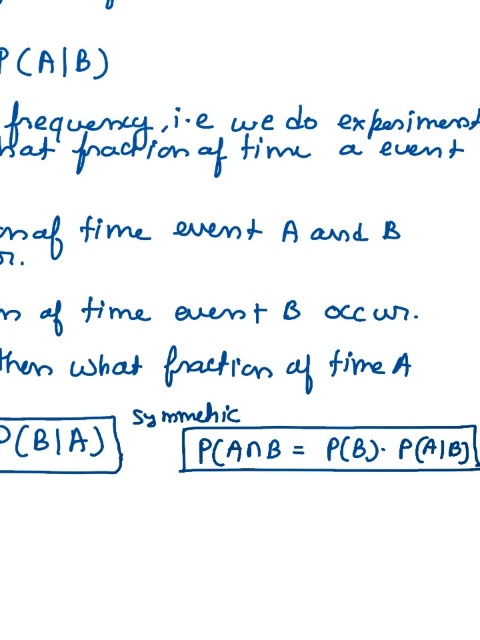 P(A|B)
frequency, i.e we do experiment
hat fraction of time a event
n of time event A and B
r.
n of time event B occur.
then what fraction of time A
Symmetric
P(B|A)
P(A∩B = P(B). P(A|B)